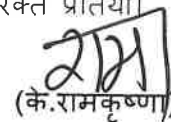 रिक्त प्रतियाँ
राम
(के.रामकृष्णा)